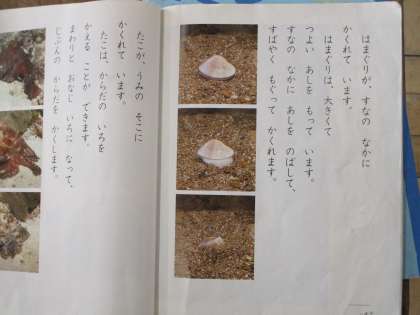 はまぐりが、すなの なかに
かくれて います。
はまぐりは、大きくて
つよい あしを もって います。
すなの なかに あしを のばして、
すばやく もぐって かくれます。
たこが、うみの そこに
かくれて います。
たこは、からだの いろを
かえる ことが できます。
まわりと おなじ いろに なって、
じぶんの からだを かくします。